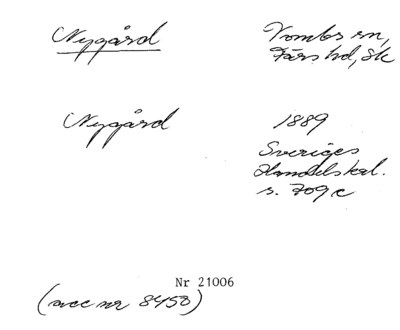 Nygård
Vombs sn,
Färs hd, Sk
Nygård
1889
Sveriges
Handelskal.
s. 709 c
Nr 21006
(acc nr 8458)